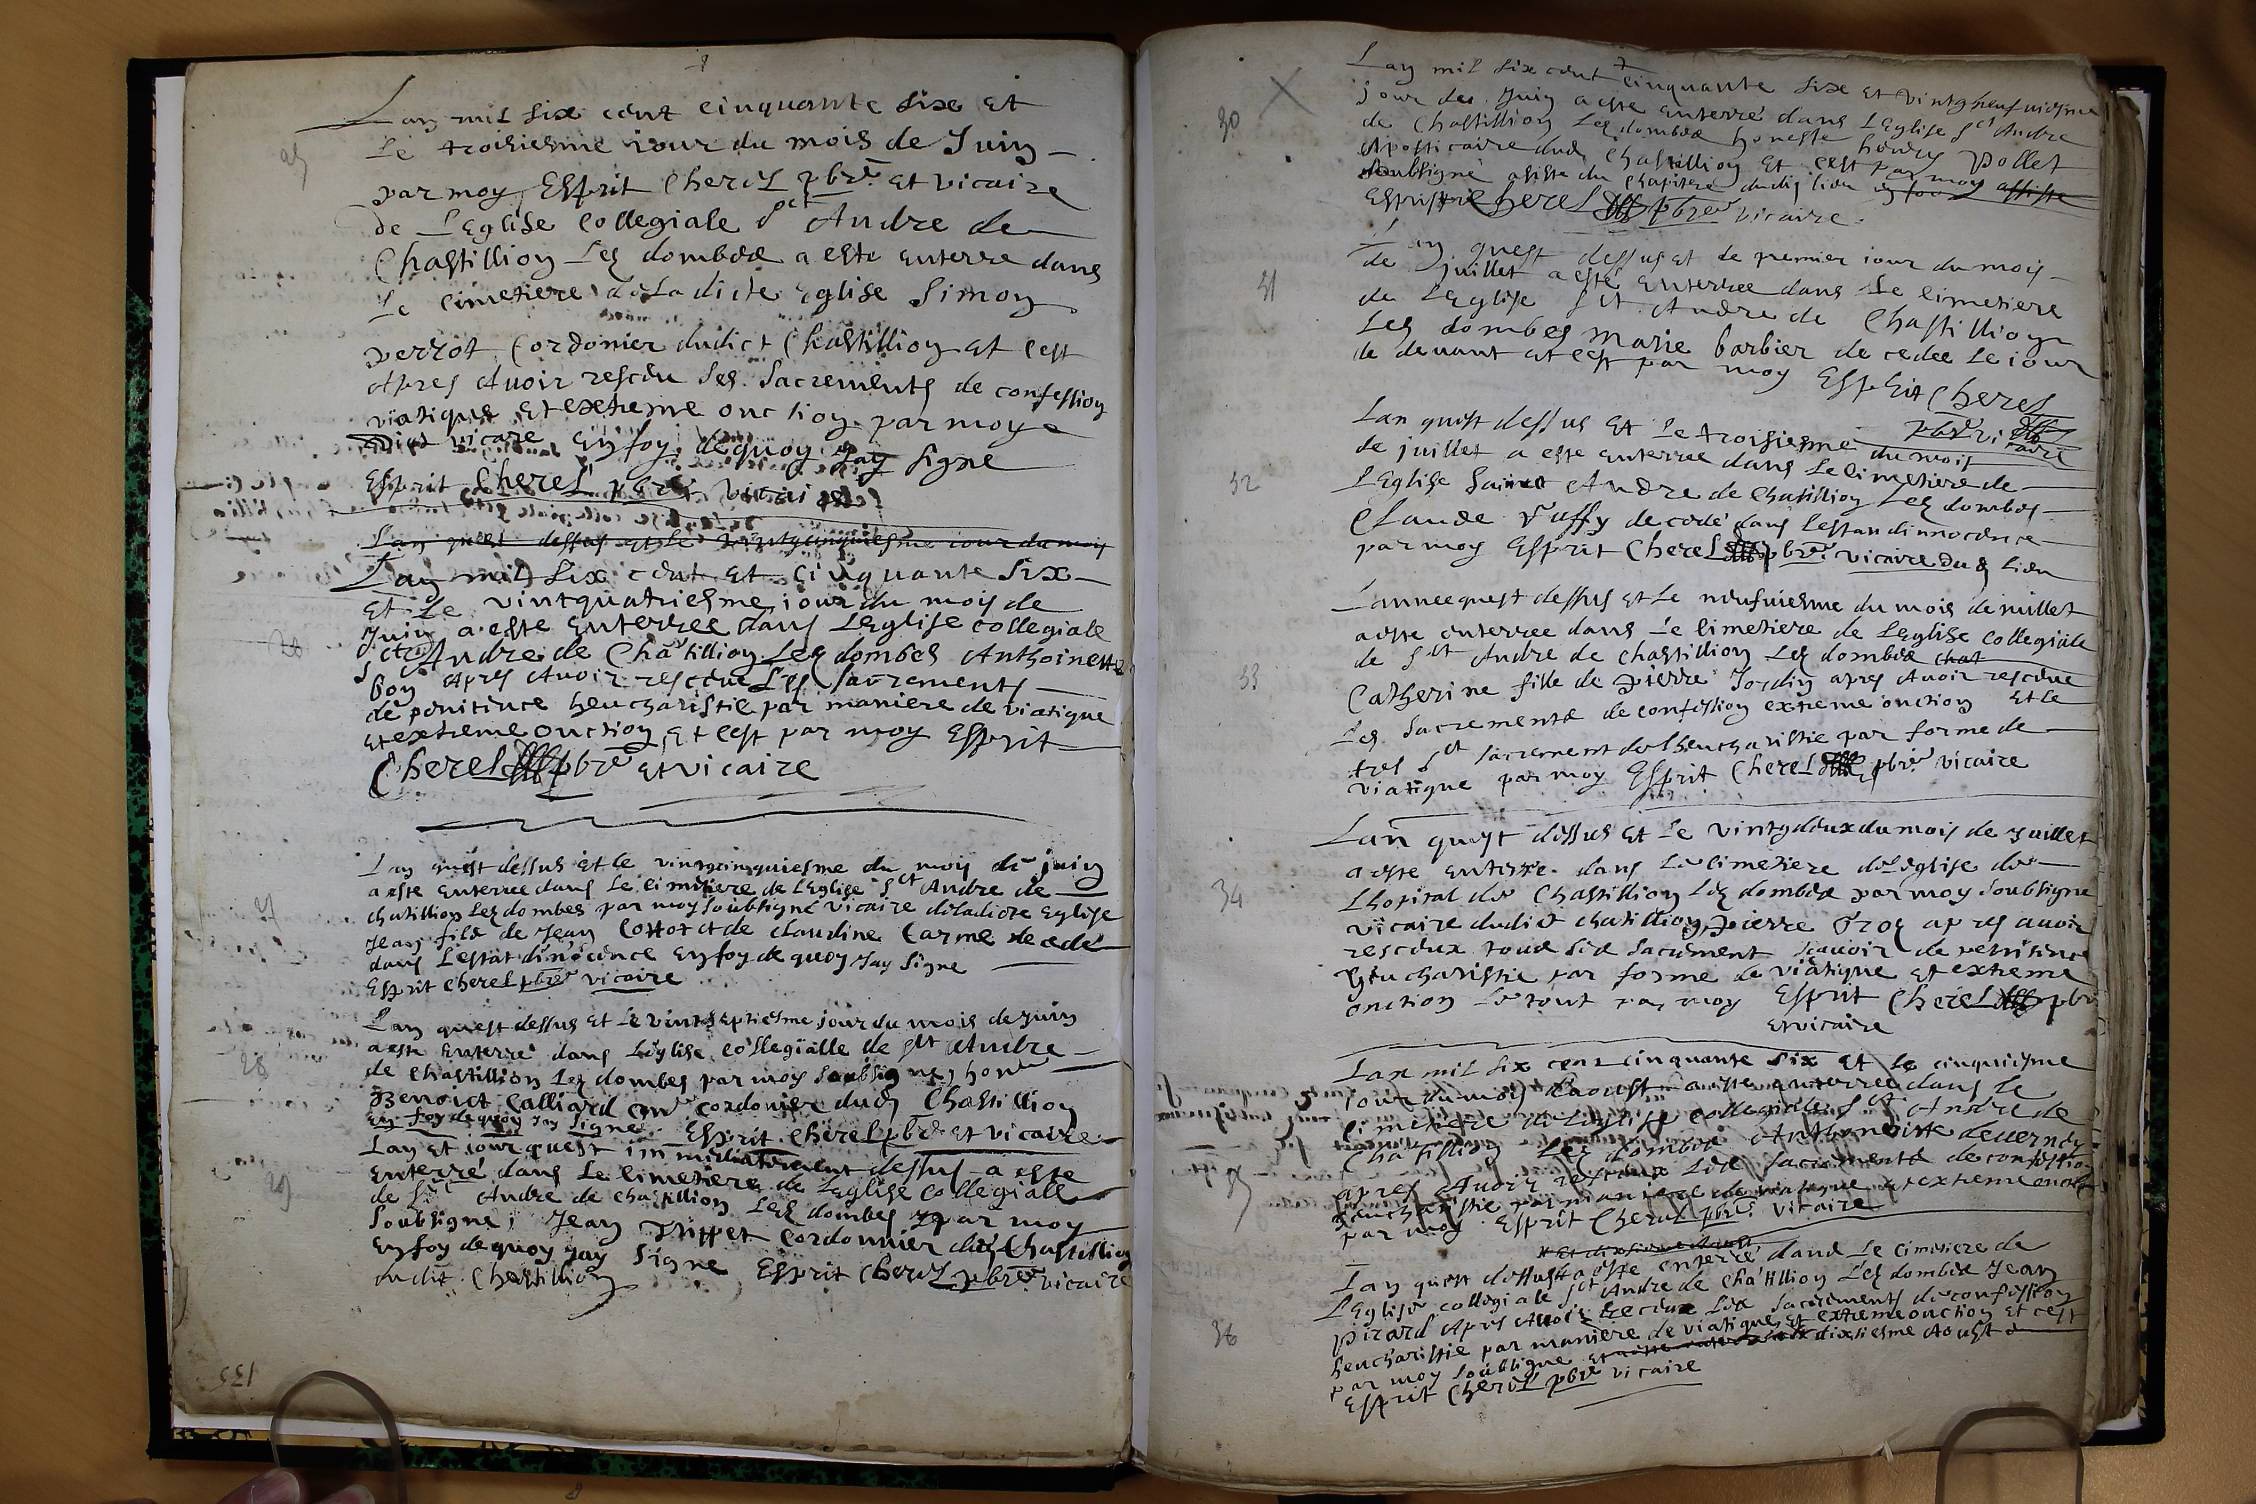 25
Lan mil six cent cinquante six et
le troisiesme iour du mois de Juin
par moy Esprit Cherel pbre et vicaire
de L'Eglise Collegiale St Andre de
Chastillion Les dombes a este enterre dans
Le Cimetiere de La dicte Eglise Simon
perrot Cordonier dudict Chastillion et cest
Apres Avoir resceu Ses Sacrements de confession
viatique et extreme onction par moy
dict vicare En foy dequoy Jay Signe
Esprit Cherel pbre vicaire
Lan quest dessus et le vintcinquiesme iour du moys
Lan mil six cent et cinquante six
26
et Le vintquatriesme iour du mois de
Juin a este Enterree dans LEglise collegiale
St Andre de Chastillion Les dombes Anthoinette
bon Apres Avoir resceu Les Sacrements
de penitence heucharistie par maniere de viatique
et extreme onction et cest par moy Esprit
Cherel pbre et vicaire
Lan quest dessus et le vintgcinquiesme du moys de juin
27
a este Enterre dans Le cimitiere de L'Eglise St Andre de
chatillion Les dombes par moy Soubsigne vicaire de ladicte Eglise
Jean fils de Jean Cottot et de claudine Carme decede
dans Lestat dinocence En foy de quoy Jay Signe
Esprit Cherel pbre vicaire
Lan quest dessus et Le vintseptiesme jour du mois de Juin
28
a este Enterre dans Leglise collegialle de St Andre
de Chastillion Les dombes par moy soubsigne hon
Benoict Calliard cordonier dud Chastillion
En foy de quoy Jay Signe Esprit Cherel pbre et vicaire
Lan et iour quest immediatement dessus a este
29
Enterre dans Le Cimetiere de LEglise Collegialle
de St Andre de chastillion Les dombes par moy
Soubsigne Jean Trippet Cordonnier dud Chastillion
En foy de quoy Jay Signe Esprit Cherel pbre vicaire
dudit Chastillion
135
Lan mil six cent cinquante six et vintgneufviesme
30
jour de Juin a este Enterre dans LEglise St Andre
de Chastillion Les dombes honeste henry Pollet
Apotticaire dud Chastillion et cest par moy
soubsigne asiste du Chapitre dudis lieu en foy assiste
Esprit Cherel pbre vicaire
Lan quest dessus et Le premier iour du mois
31
de juillet a este Enterree dans Le Cimetiere
de LEglise St Andre de Chastillion
Les dombes Marie barbier decedee Le iour
de devant et cest par moy Esprit Cherel
pbre vicaire
Lan quest dessus et Le troisiesme du mois
de juillet a este Enterree dans Le Cimetiere de
32
LEglise Sainct Andre de Chatillion Les dombes
Claude decede dans Lestat dinnocence
par moy Esprit Cherel pbre vicaire dud lieu
Lannee quest dessus et Le neufviesme du mois de iuillet
a este enterree dans Le Cimetiere de LEglise collegiale
de St Andre de Chastillion Les dombes chat
33
Catherine fille de Pierre Jordin apres Avoir resceue
Les Sacrements de confession extreme onction et le
tres St Sacrement de lheucharistie par forme de
viatique par moy Esprit Cherel pbre vicaire
Lan quest dessus et Le vintgdeux du mois de Juillet
a este enterre dans Le cimetiere de Leglise de
34
Lhopital de Chastillion Les dombes par moy Soubsigne
vicaire dudict chatillion Pierre apres avoir
resceux tous Ses Sacrement scavoir de penitence
heucharistie par forme de viatique et extreme
onction Le tout par moy Esprit Cherel pbre
et vicaire
Lan mil six cent cinquante six et le cinquiesme
iour du mois daoust a este enterree dans le
Cimetiere de Leglise collegiale St Andre de
Chatillion Les dombes Anthonoitte
35
apres Avoir resceux Les Sacrements de confession
heucharistie par maniere de viatique et extreme onction
par moy Esprit Cherel pbre vicaire
Lan quest dessus a este enterre dans Le Cimetiere de
LEglise collegiale St Andre de Chatillion Les dombes Jean
36
pirard Apres Avoir resceux Les Sacrements de confession
heucharistie par maniere de viatique et extreme onction et cest
par moy Soubsigne dixiesme Aoust
Esprit Cherel pbre vicaire